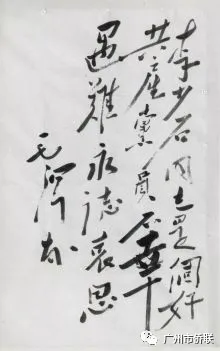 李少石同志是個好
共产党員不幸
遇難永誌哀思
毛泽东
广州市侨联